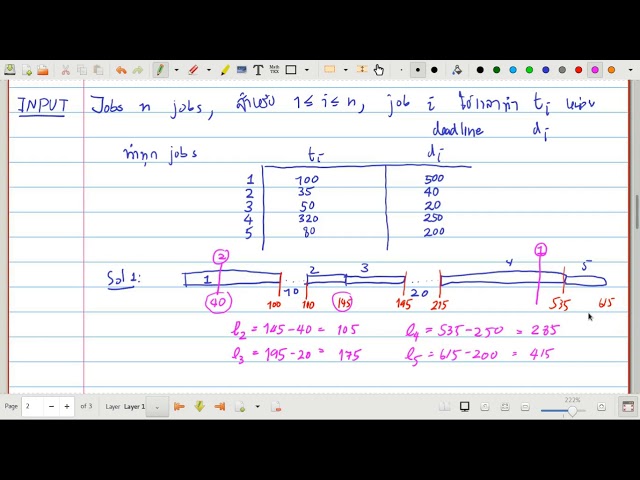 INPUT Jobs n jobs, สำหรับ 1 ≤ i ≤ n, job i ใช้เวลาทำ tᵢ หน่วย
deadline dᵢ
ทำทุก jobs
tᵢ dᵢ
1 100 500
2 35 40
3 50 20
4 320 250
5 80 200
2 1
Sol 1: 1 2 3 4 5
10 20
40 100 110 145 195 215 535 615
l₂ = 145-40 = 105 l₄ = 535-250 = 285
l₃ = 195-20 = 175 l₅ = 615-200 = 415
Page 2 of 3 Layer Layer 1 222%